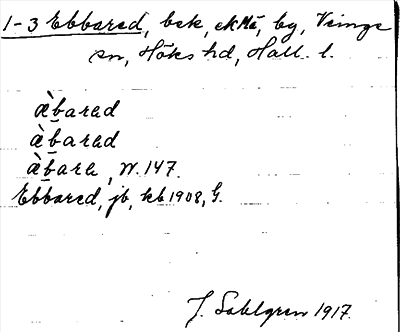 1-3 Ebbared, bek, ekMå, by, Veinge
sn, Höks hd, Hall. l.
æ̀bared
æ̀bared
æ̀bare, W. 147.
Ebbared, jb, kb 1908, G.
J. Sahlgren 1917.